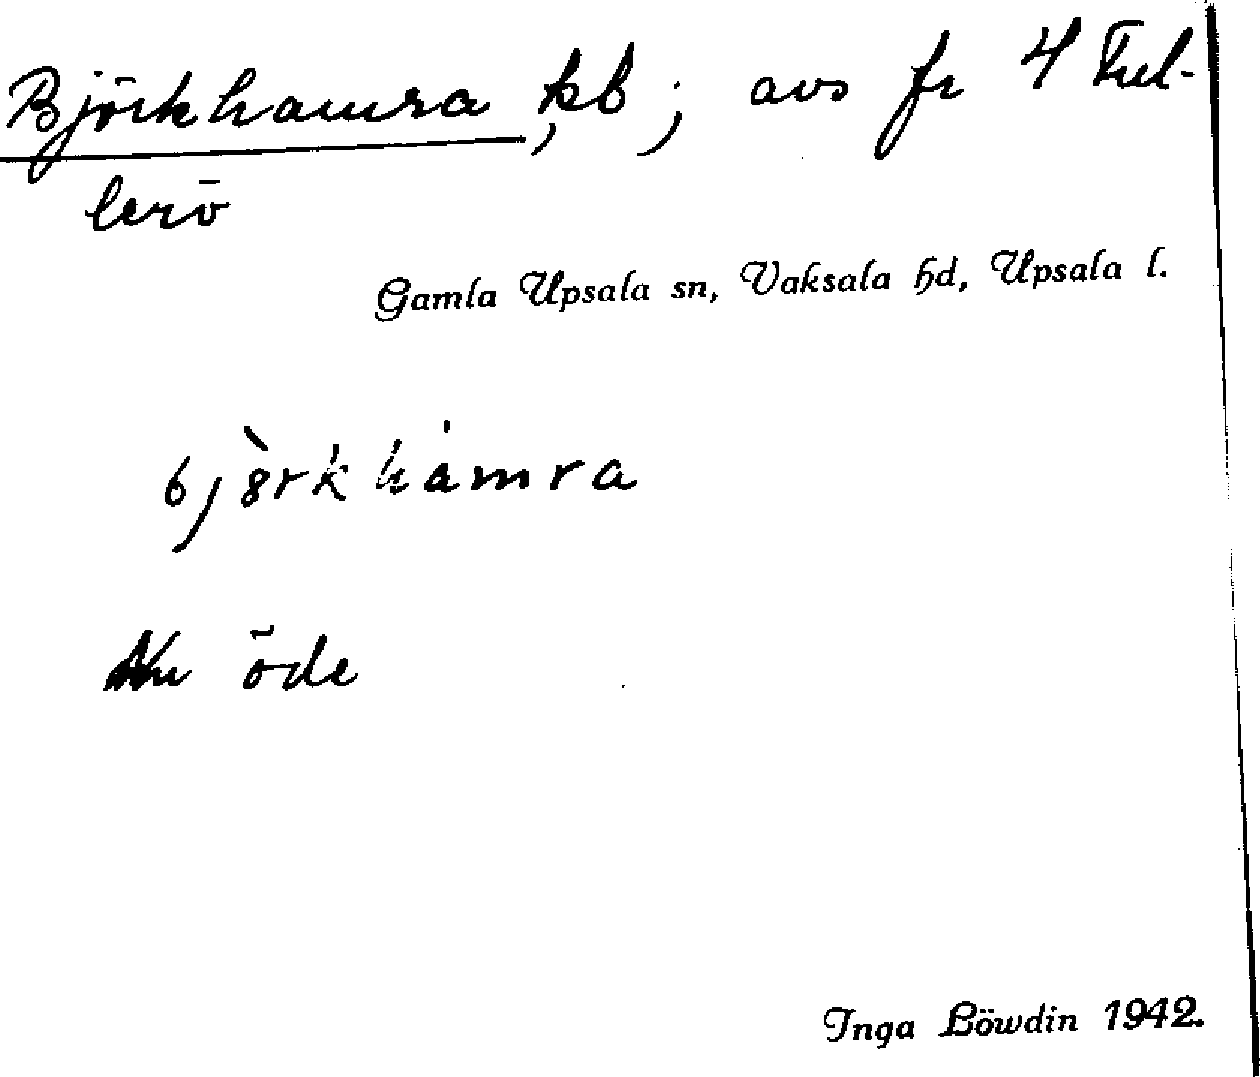 Björkhamra, kb; avs fr 4 Ful-
lerö
Gamla Upsala sn, Vaksala hd, Upsala l.
björkhamra
Nu öde
Inga Löwdin 1942.